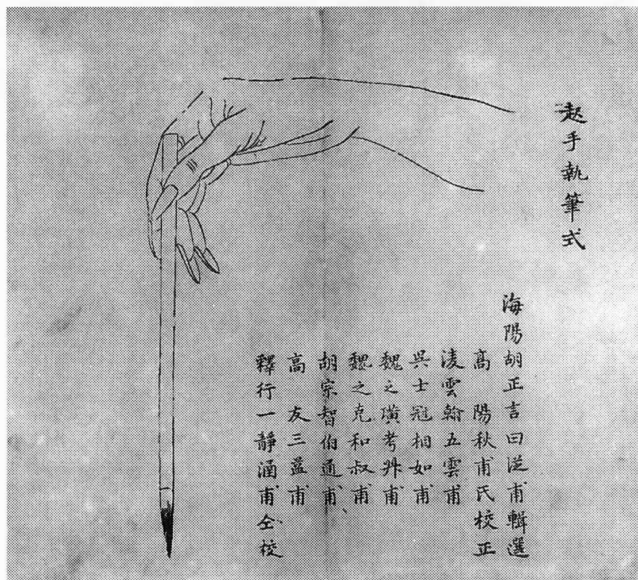 起手執筆式
海陽胡正言曰從甫輯選
高 陽秋甫氏校正
淩雲翰五雲甫
吳士冠相如甫
魏之璜考叔甫
魏之克和叔甫
胡宗智伯通甫
高 友三益甫
釋行一靜涵甫仝校